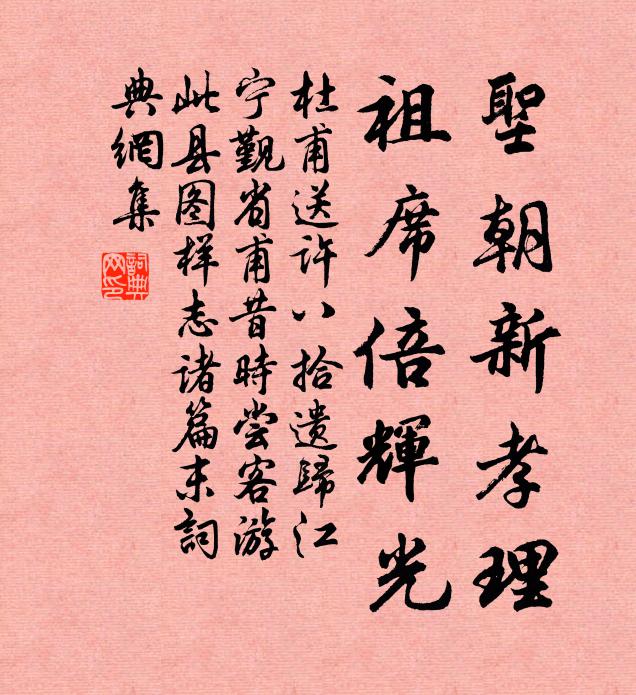 聖朝新孝理
祖席倍輝光
杜甫送許八拾遺歸江
宁觐省甫昔時嘗客游
此县图样志诸篇末詞
典網集
詞典網印